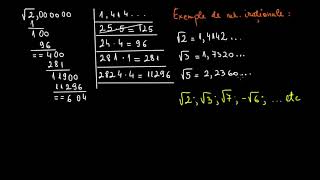 √2,000000
1
100
96
==400
281
11900
11296
==604
1,414...
25·5=125
24·4=96
281·1=281
2824·4=11296
Exemple de nr. iraționale:
√2=1,4142...
√3=1,7320...
√5=2,2360...
√2; √3; √7; -√6; ... etc